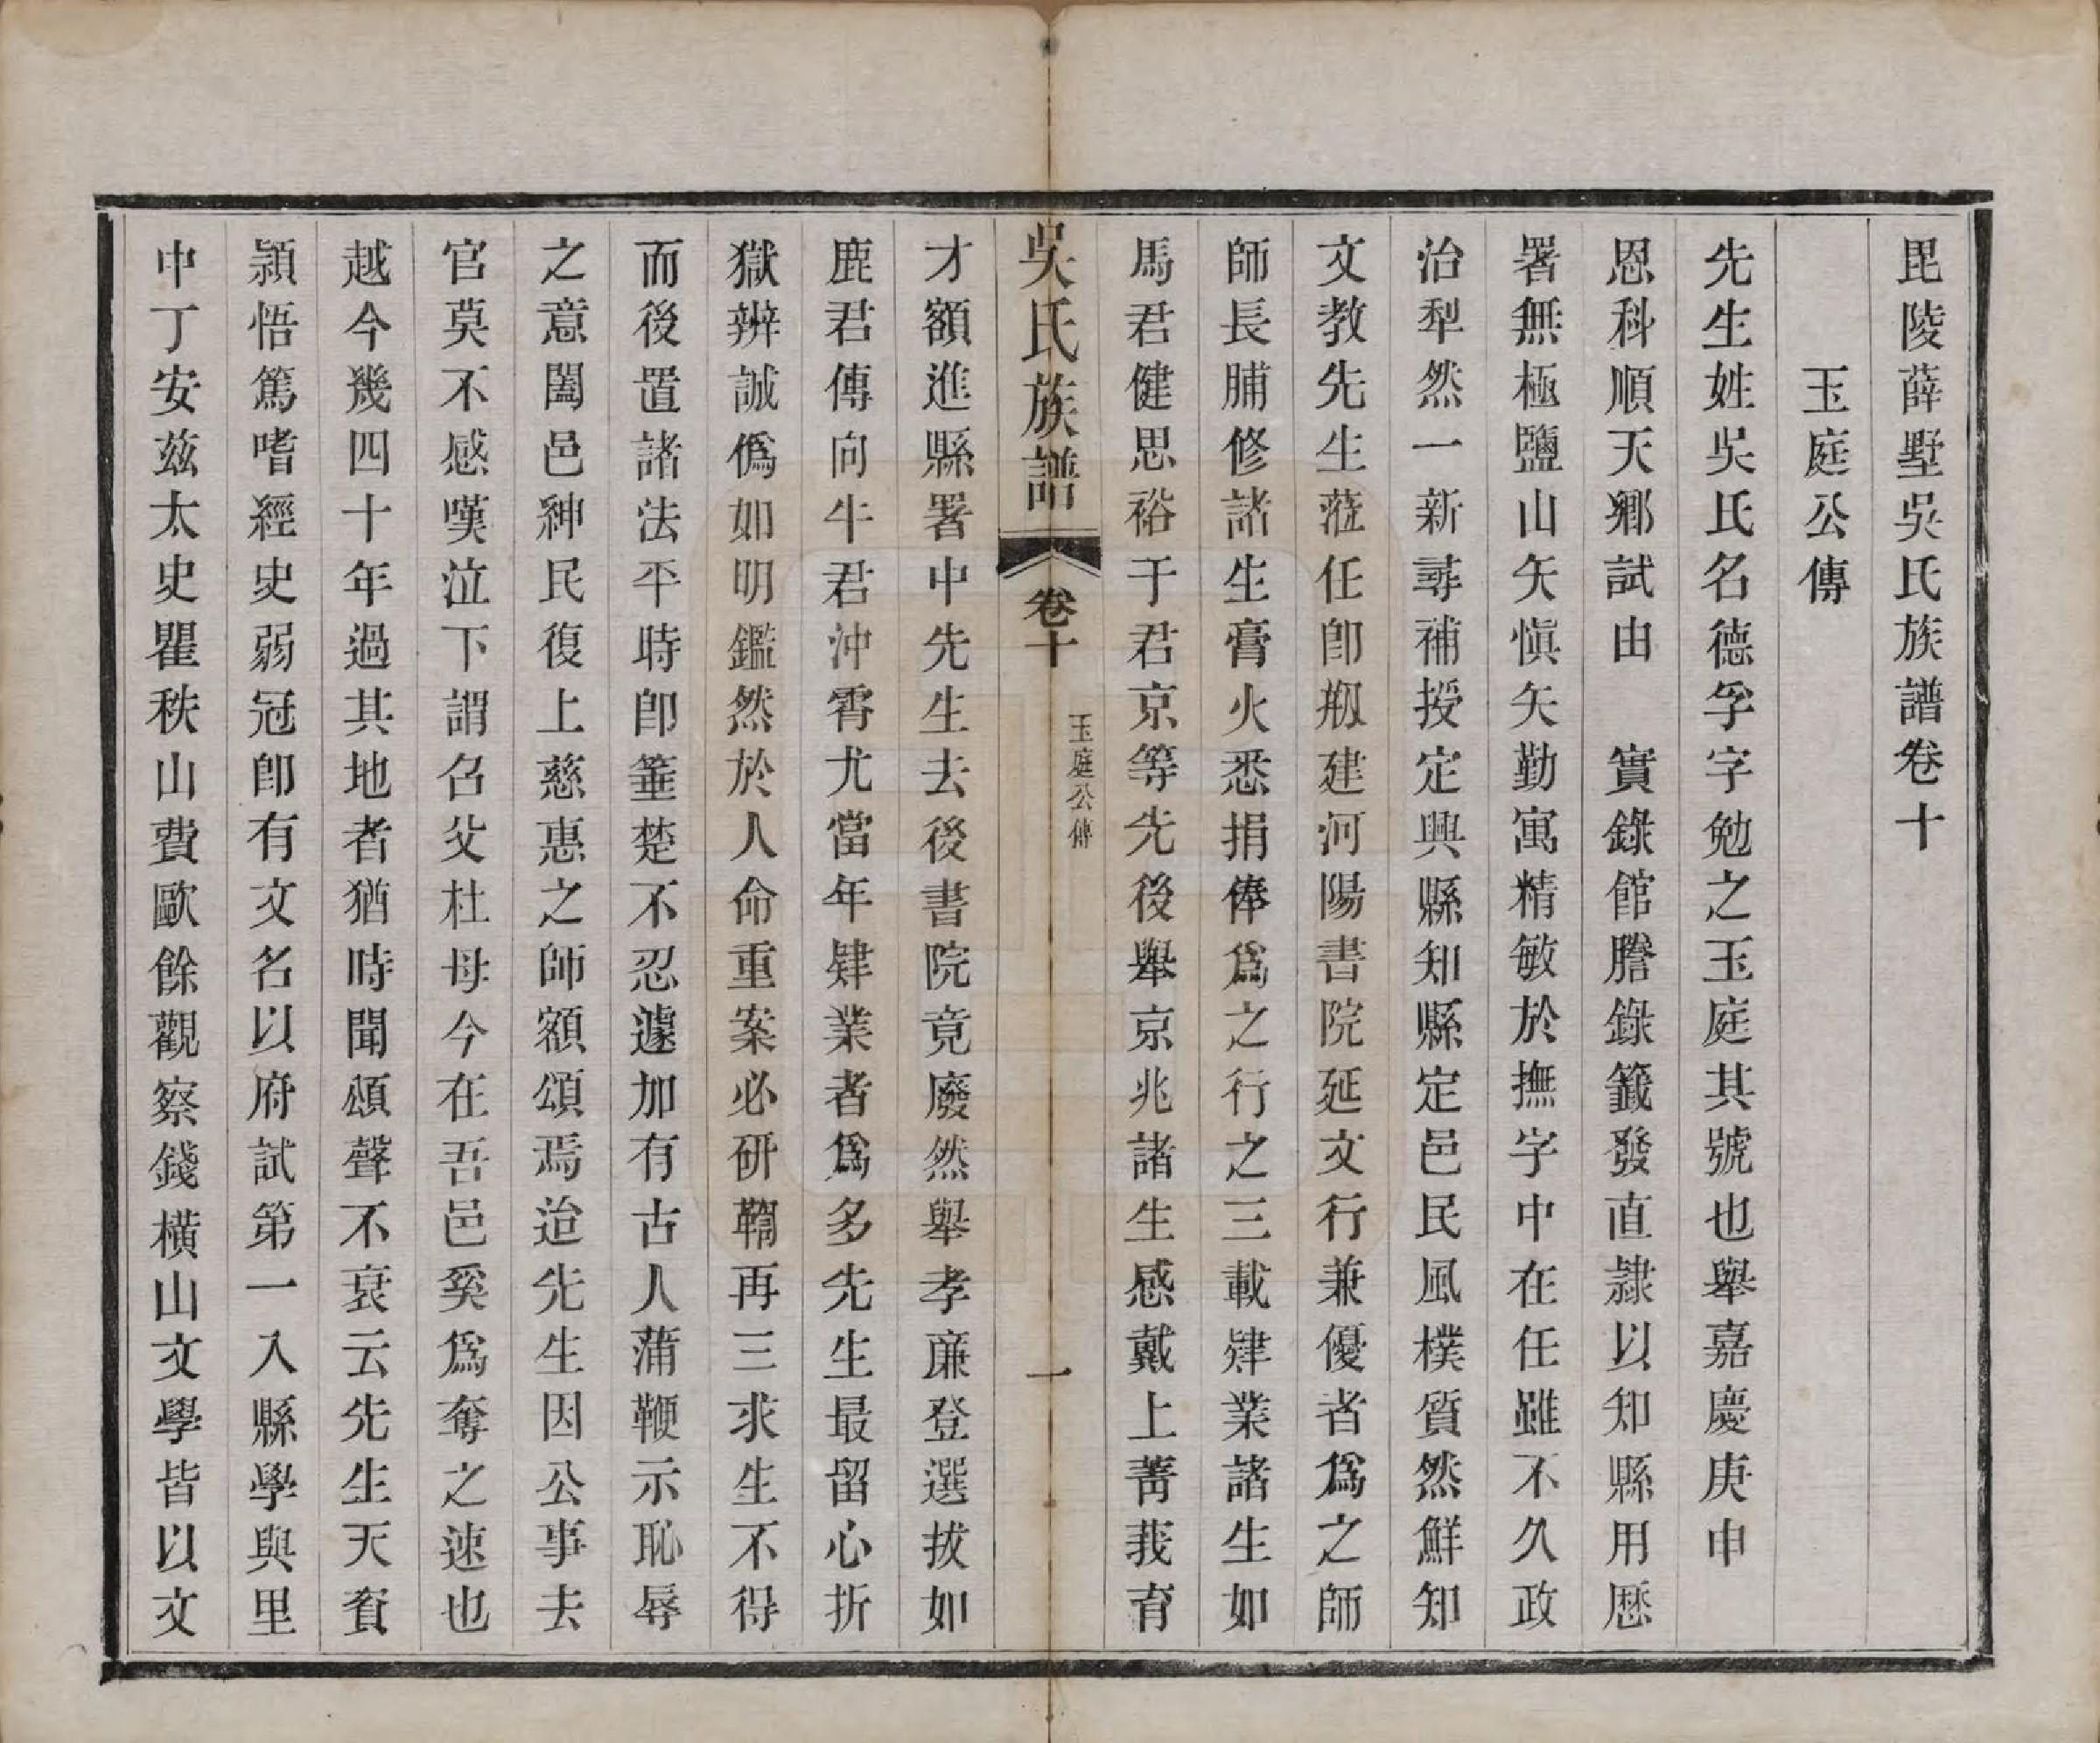 毘陵薛墅吳氏族譜卷十
玉庭公傳
先生姓吳氏名德孚字勉之玉庭其號也舉嘉慶庚申
恩科順天鄉試由　實錄館謄錄籤發直隸以知縣用歷
署無極鹽山矢愼矢勤寓精敏於撫字中在任雖不久政
治犁然一新尋補授定興縣知縣定邑民風樸質然鮮知
文教先生蒞任卽剏建河陽書院延文行兼優者爲之師
師長脯修諸生膏火悉捐俸爲之行之三載肄業諸生如
馬君健思裕于君京等先後舉京兆諸生感戴上菁莪育
吳氏族譜　卷十　玉庭公傳　一
才額進縣署中先生去後書院竟廢然舉孝廉登選拔如
鹿君傳向牛君沖霄尤當年肄業者爲多先生最留心折
獄辨誠僞如明鑑然於人命重案必研鞫再三求生不得
而後置諸法平時卽箠楚不忍遽加有古人蒲鞭示恥辱
之意闔邑紳民復上慈惠之師額頌焉迨先生因公事去
官莫不感嘆泣下謂召父杜母今在吾邑奚爲奪之速也
越今幾四十年過其地者猶時聞頌聲不衰云先生天資
穎悟篤嗜經史弱冠卽有文名以府試第一入縣學與里
中丁安茲太史瞿秩山費歐餘觀察錢橫山文學皆以文